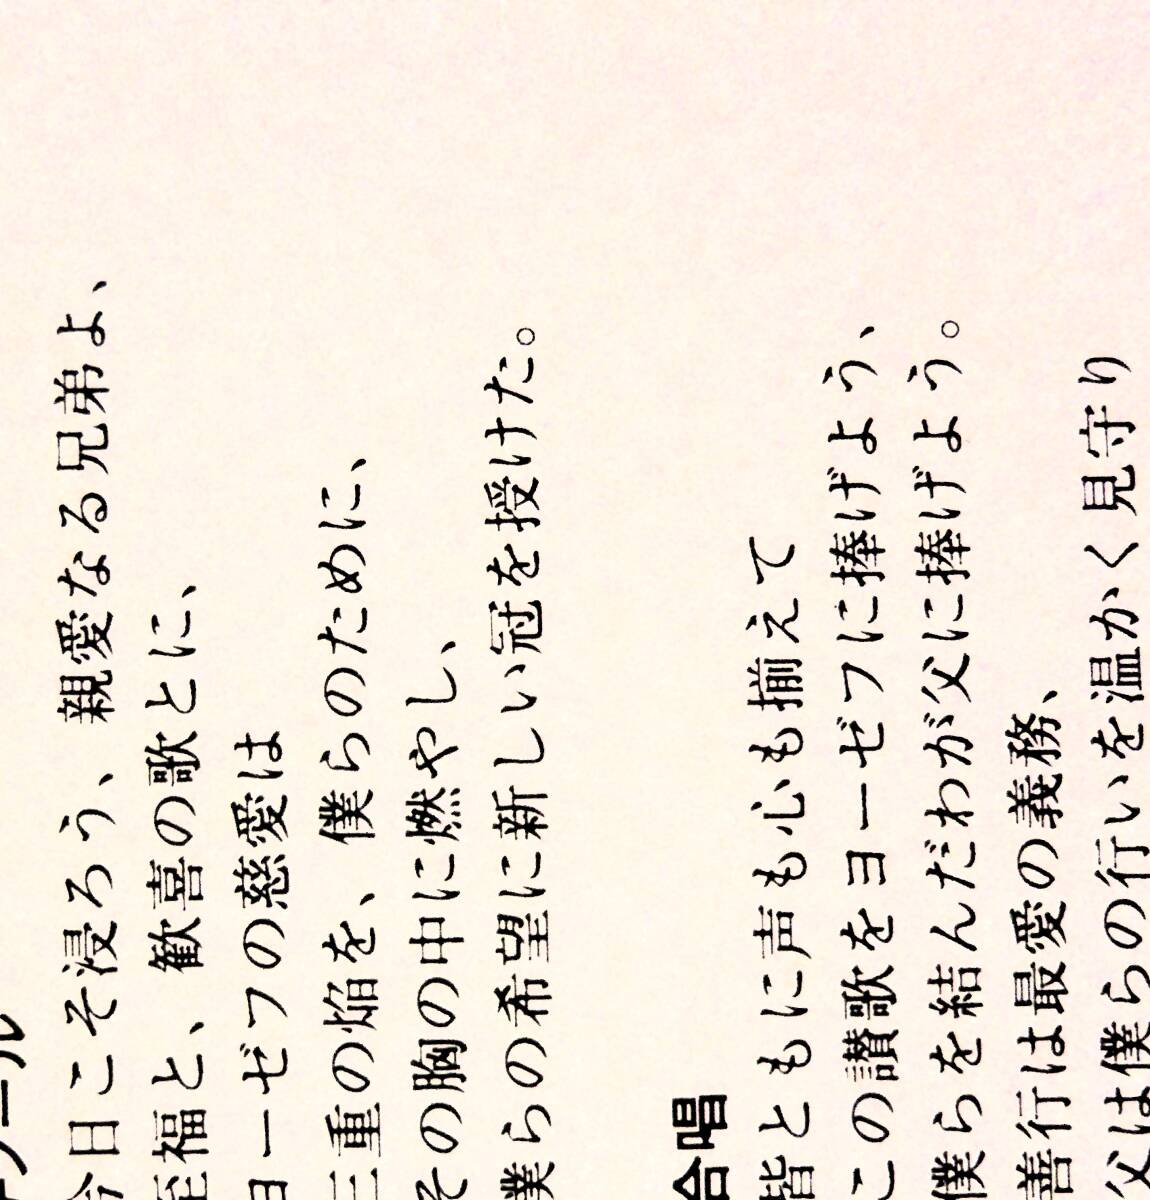 ノール
今日こそ浸ろう、親愛なる兄弟よ、
至福と、歓喜の歌とに、
ヨーゼフの慈愛は
三重の焔を、僕らのために、
その胸の中に燃やし、
僕らの希望に新しい冠を授けた。
合唱
皆ともに声も心も揃えて
この讃歌をヨーゼフに捧げよう、
僕らを結んだわが父に捧げよう。
善行は最愛の義務、
父は僕らの行いを温かく見守り